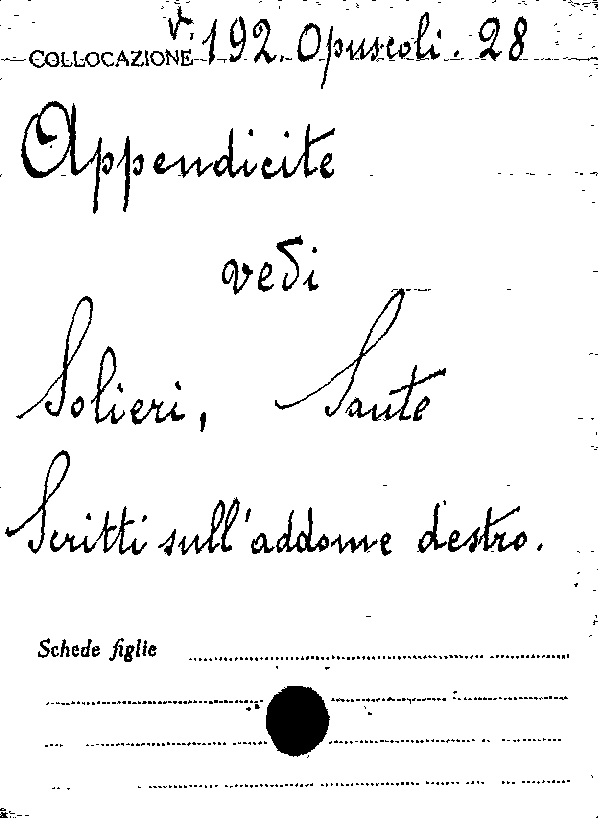 COLLOCAZIONE v. 192. Opuscoli. 28
Appendicite
vedi
Solieri, Sante
Scritti sull'addome destro.
Schede figlie